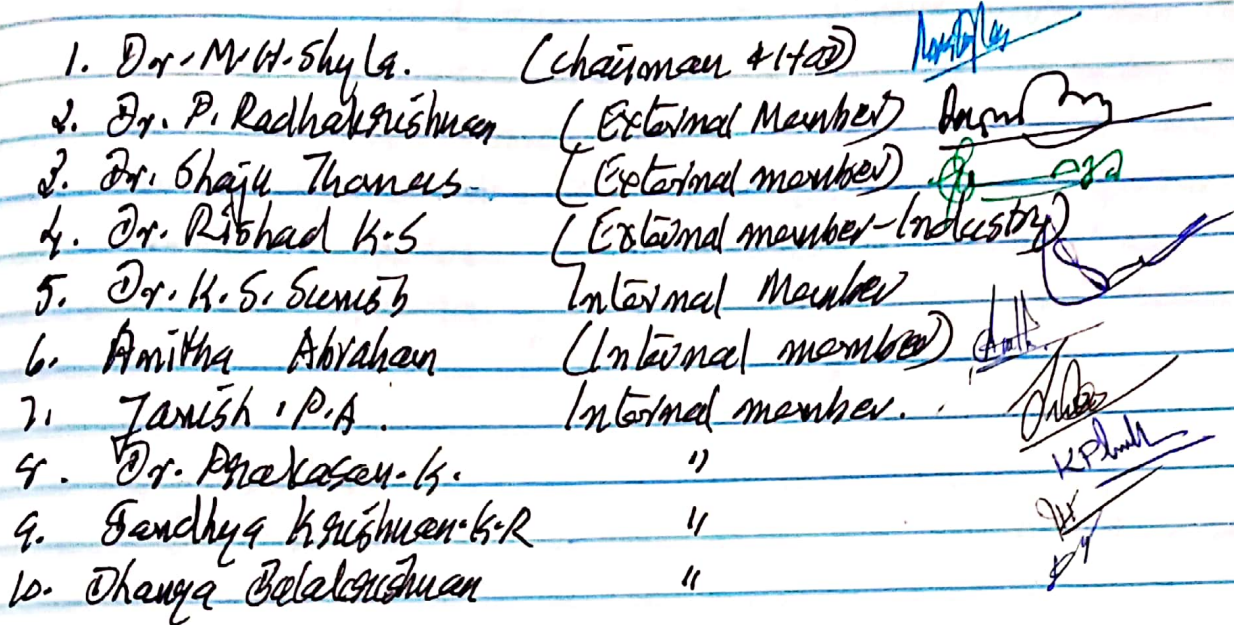 1. Dr. M.H. Shyla. (Chairman & HOD)
2. Dr. P. Radhakrishnan (External Member)
3. Dr. Shaju Thomas. (External member)
4. Dr. Rishad K.S (External member-Industry)
5. Dr. K.S. Sumesh Internal Member
6. Anitha Abraham (Internal member)
7. Janish . P.A. Internal member.
8. Dr. Prakasan. K. "
9. Sandhya Krishnan. K.R "
10. Dhanya Balakrishnan "